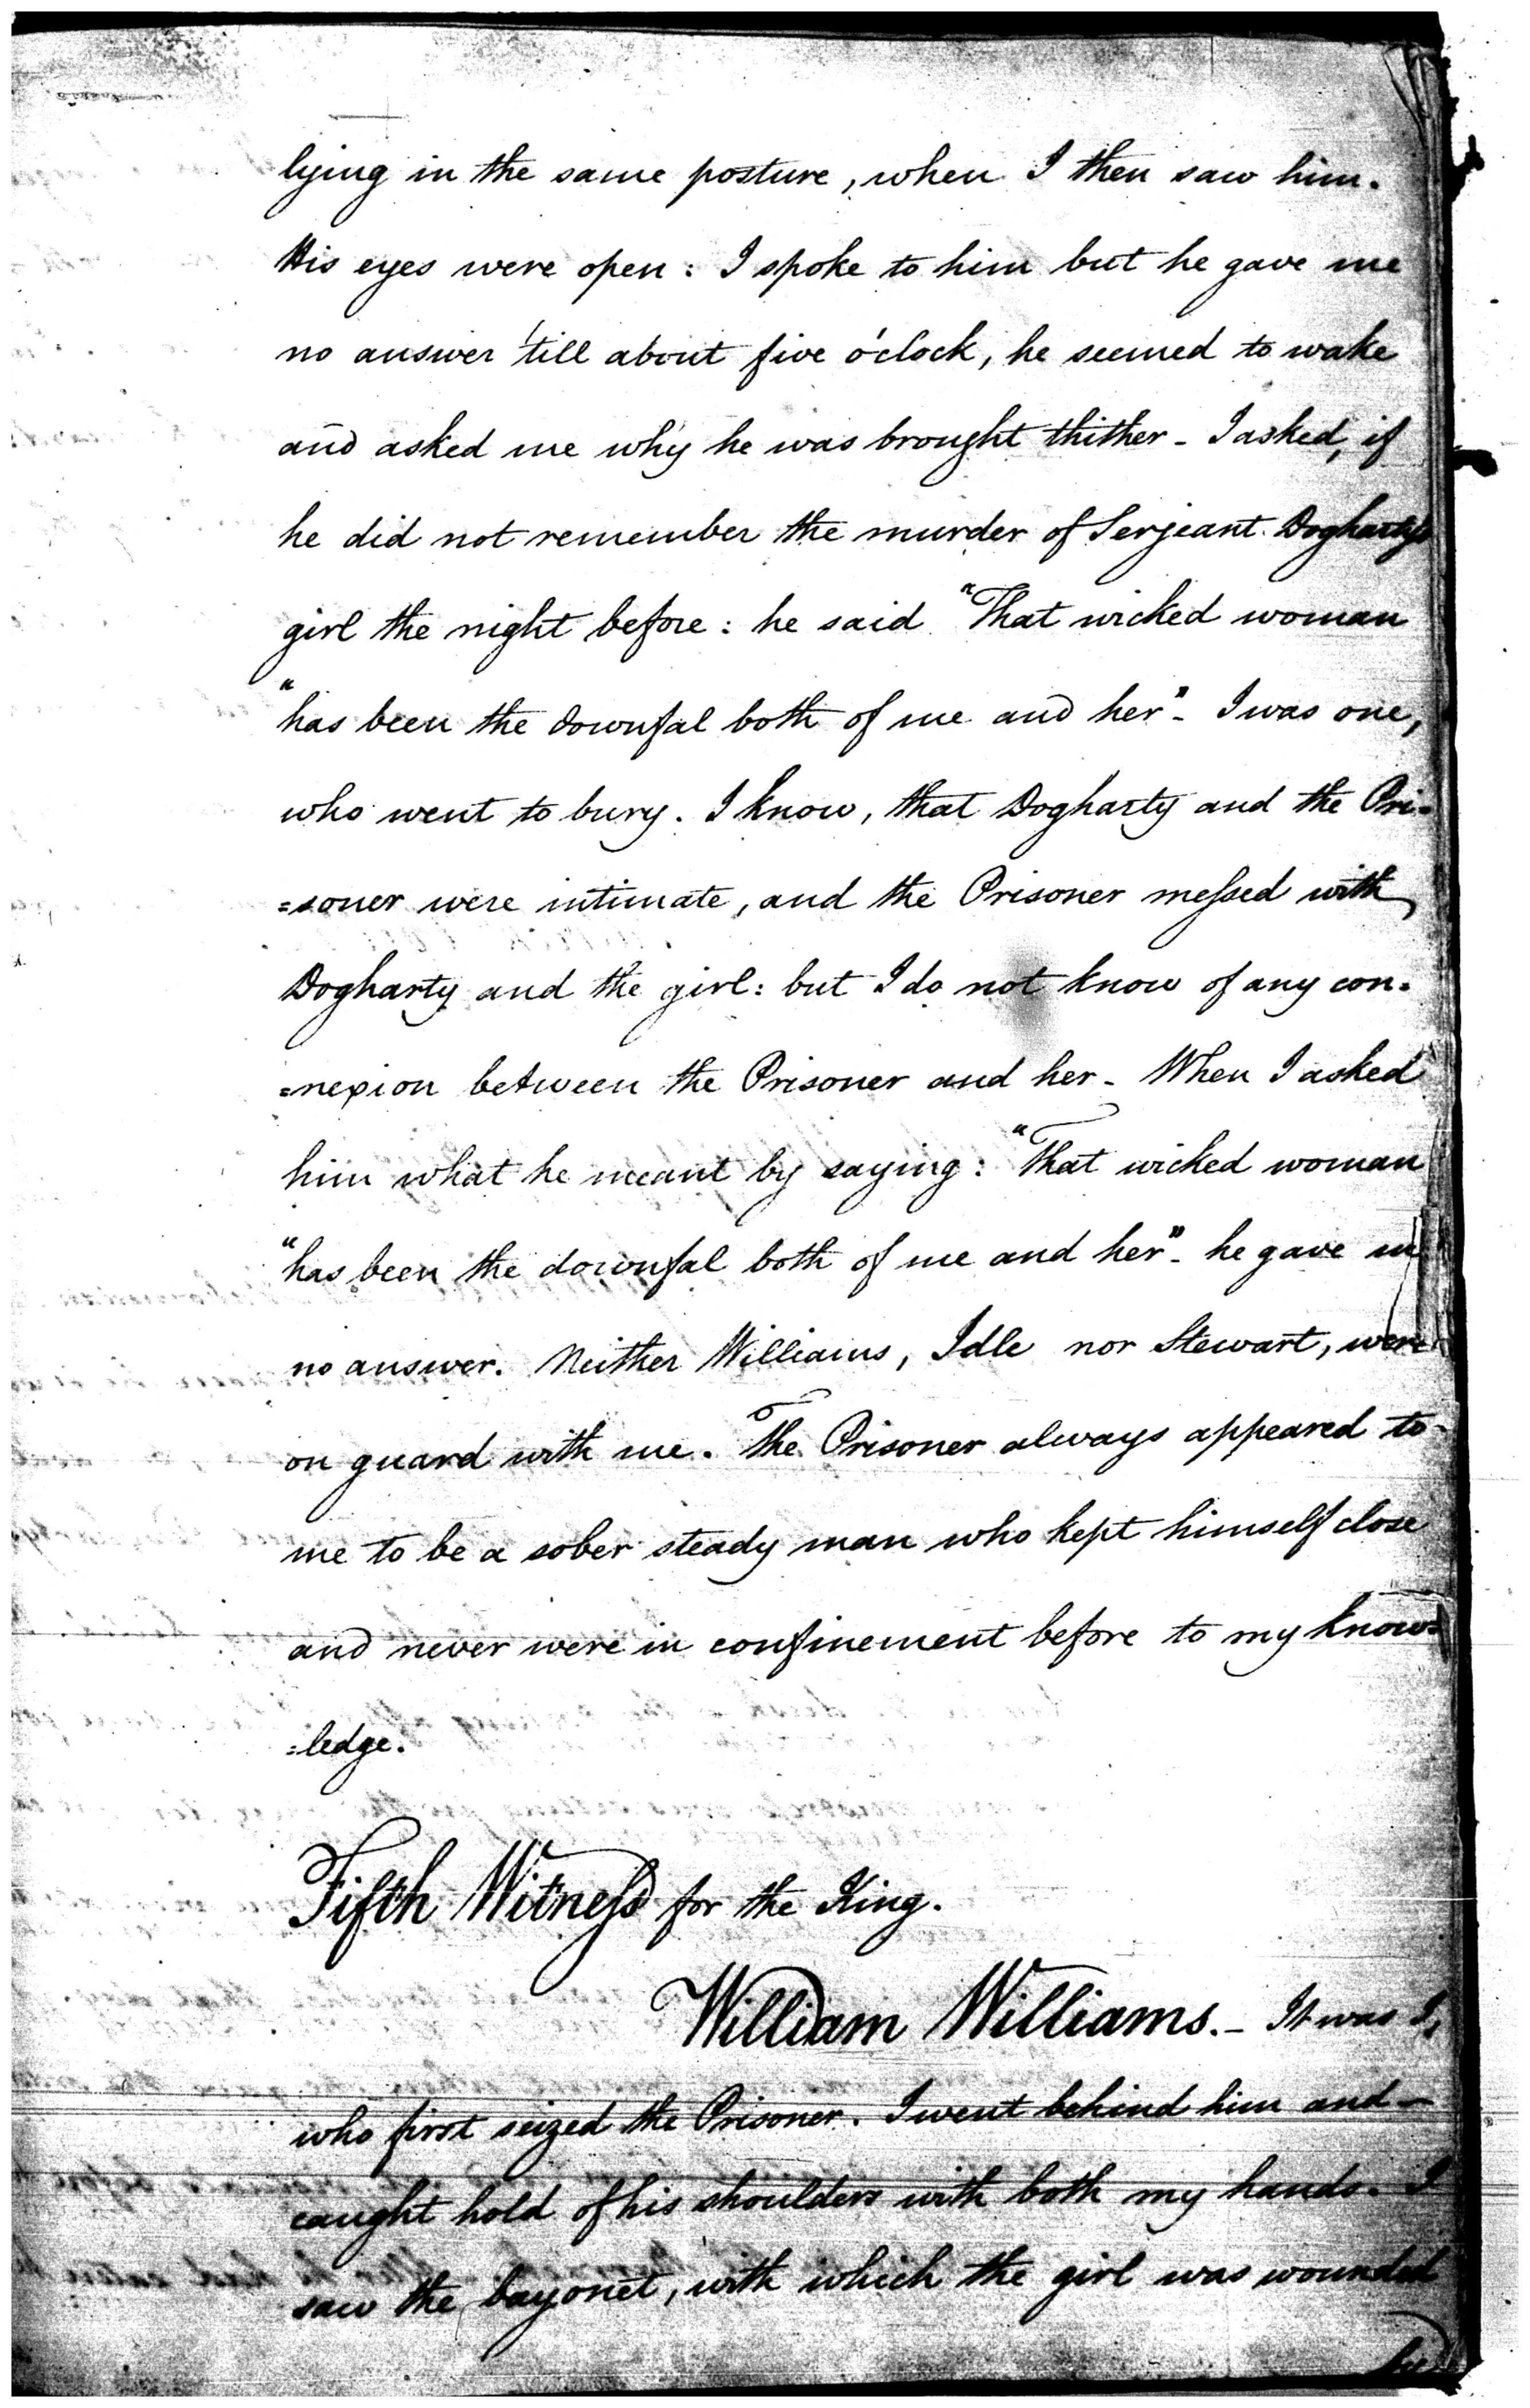 lying in the same posture, when I then saw him.
His eyes were open: I spoke to him but he gave me
no answer 'till about five o'clock, he seemed to wake
and asked me why he was brought thither - I asked, if
he did not remember the murder of Serjeant Dogharty's
girl the night before: he said "That wicked woman
"has been the downfal both of me and her" - I was one,
who went to bury. I know, that Dogharty and the Pri-
=soner were intimate, and the Prisoner messed with
Dogharty and the girl: but I do not know of any con-
=nexion between the Prisoner and her - When I asked
him what he meant by saying: "That wicked woman
"has been the downfal both of me and her" - he gave me
no answer. Neither Williams, Idle nor Stewart, were
on guard with me. The Prisoner always appeared to
me to be a sober steady man who kept himself close
and never were in confinement before to my know=
=ledge.
Fifth Witness for the King.
William Williams. - It was I,
who first seized the Prisoner. I went behind him and -
caught hold of his shoulders with both my hands. I
saw the bayonet, with which the girl was wounded